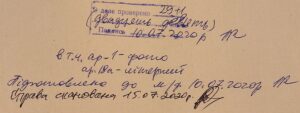 в справі проверено 29+1
(двадцять девять)
Підпис 10.07.2020 р
в т.ч. ар-1-фото
ар.18а-літерний
Підготовлено до м/ф. 10.07.2020р
Справа сканована 15.07.2020р